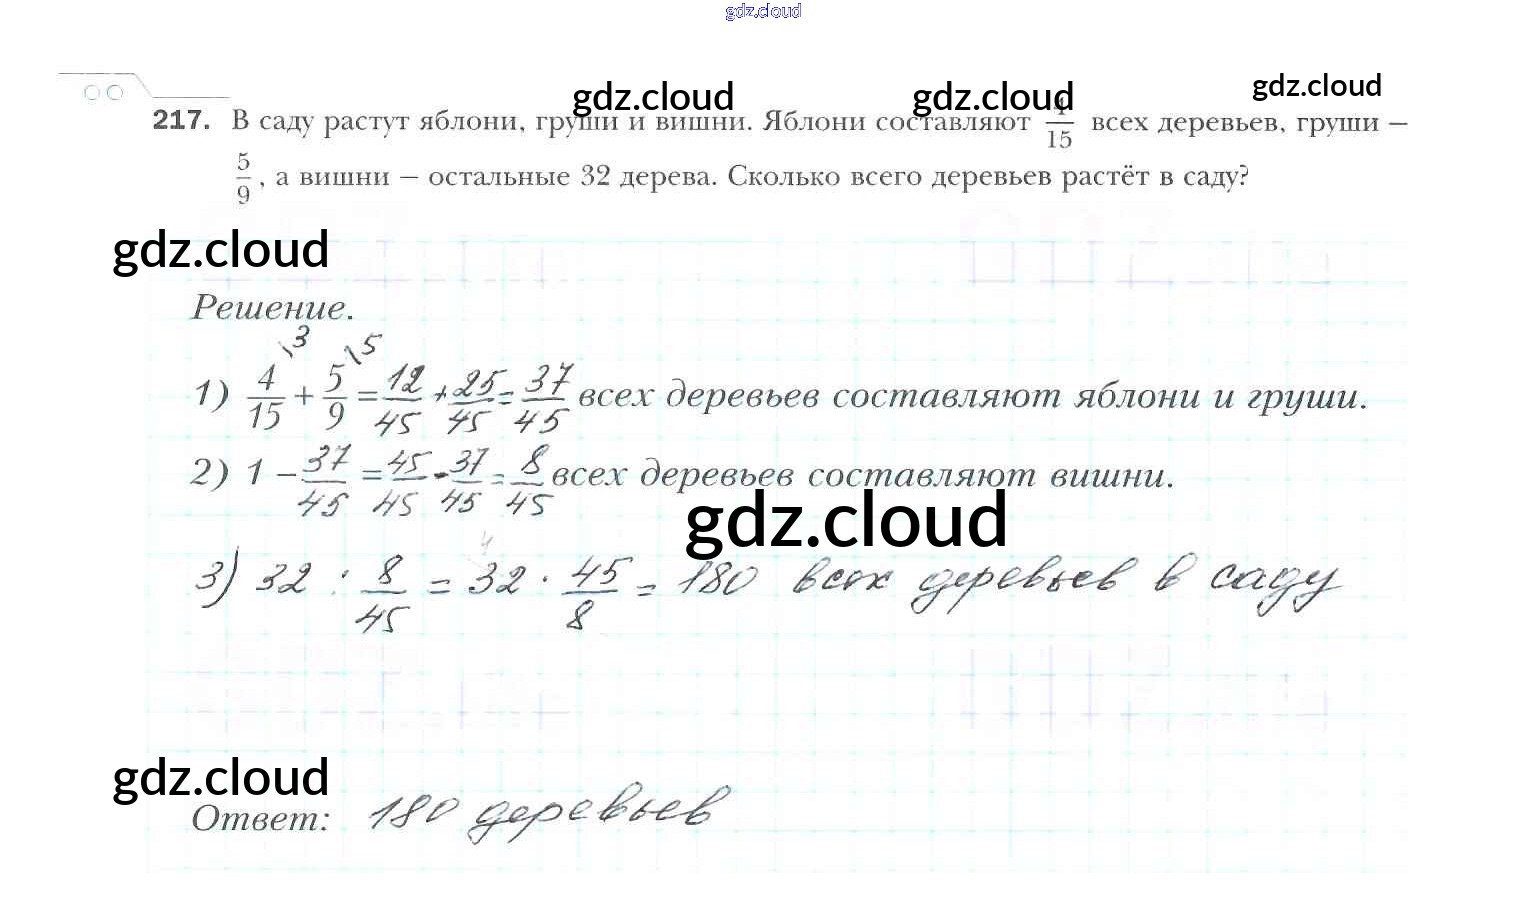 gdz.cloud
gdz.cloud gdz.cloud gdz.cloud
217. В саду растут яблони, груши и вишни. Яблони составляют 4/15 всех деревьев, груши –
5/9, а вишни – остальные 32 дерева. Сколько всего деревьев растёт в саду?
gdz.cloud
Решение.
1) 4/15 \3 + 5/9 \5 = 12/45 + 25/45 = 37/45 всех деревьев составляют яблони и груши.
2) 1 – 37/45 = 45/45 - 37/45 = 8/45 всех деревьев составляют вишни.
gdz.cloud
3) 32 : 8/45 = 32 · 45/8 = 180 всех деревьев в саду
gdz.cloud
Ответ: 180 деревьев